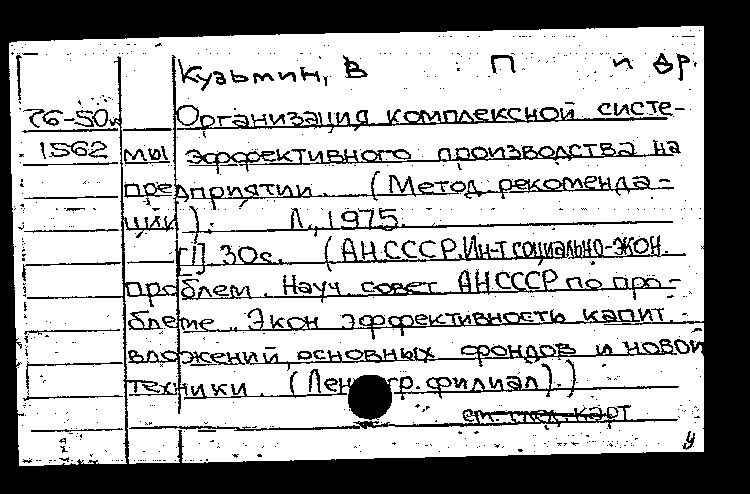 Кузьмин, В П и др.
76-50м Организация комплексной систе-
1562 мы эффективного производства на
предприятии. (Метод. рекоменда-
ции). Л., 1975.
[1], 30с. (АН СССР. Ин-т социально-экон.
проблем. Науч. совет АН СССР по про-
блеме „Экон. эффективность капит.
вложений, основных фондов и новой
техники. (Ленингр. филиал).)
см. след. карт